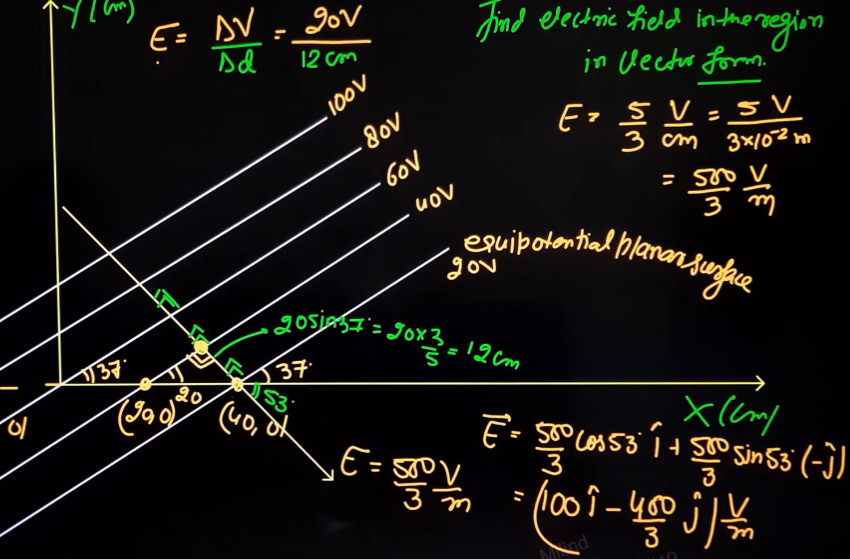 Y (cm)
E = ΔV/Δd = 20V/12 cm
Find electric field in the region
in vector form.
E = 5/3 V/cm = 5 V/3×10⁻² m
= 500/3 V/m
100V
80V
60V
40V
equipotential planar surface
20V
20 sin37° = 20×3/5 = 12 cm
37°
37°
20
53°
(20,0)
(40,0)
0)
X (cm)
E = 500/3 V/m
E⃗ = 500/3 cos53° î + 500/3 sin53° (-ĵ)
= (100 î - 400/3 ĵ) V/m